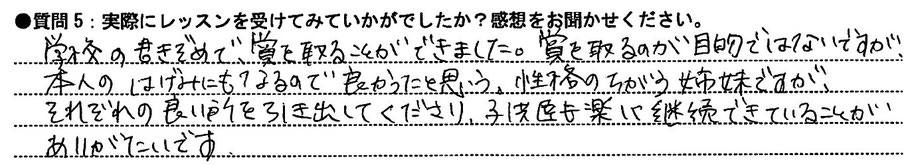 ●質問5：実際にレッスンを受けてみていかがでしたか？感想をお聞かせください。
学校の書きぞめで、賞を取ることができました。賞を取るのが目的ではないですが、
本人のはげみにもなるので良かったと思う。性格のちがう姉妹ですが、
それぞれの良い所を引き出してくださり、子供達も楽しく継続できていることが
ありがたいです。